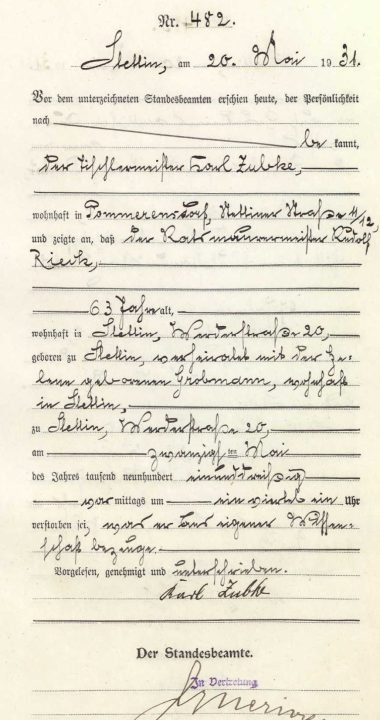 Nr. 482.
Stettin, am 20. Mai 1931.
Vor dem unterzeichneten Standesbeamten erschien heute, der Persönlichkeit
nach be kannt,
der Tischlermeister Karl Zubke,
wohnhaft in Pommerensdorf, Stettiner Straße 11/12,
und zeigte an, daß der Ratsmaurermeister Rudolf
Rieck,
63 Jahre alt,
wohnhaft in Stettin, Werderstraße 20,
geboren zu Stettin, verheiratet mit der He-
lene geborenen Grobmann, wohnhaft
in Stettin,
zu Stettin, Werderstraße 20,
am zwanzigsten Mai
des Jahres tausend neunhundert einunddreißig
vormittags um ein viertel ein Uhr
verstorben sei, was er aus eigener Wissen-
schaft bezeuge.
Vorgelesen, genehmigt und unterschrieben.
Karl Zubke
Der Standesbeamte.
In Vertretung